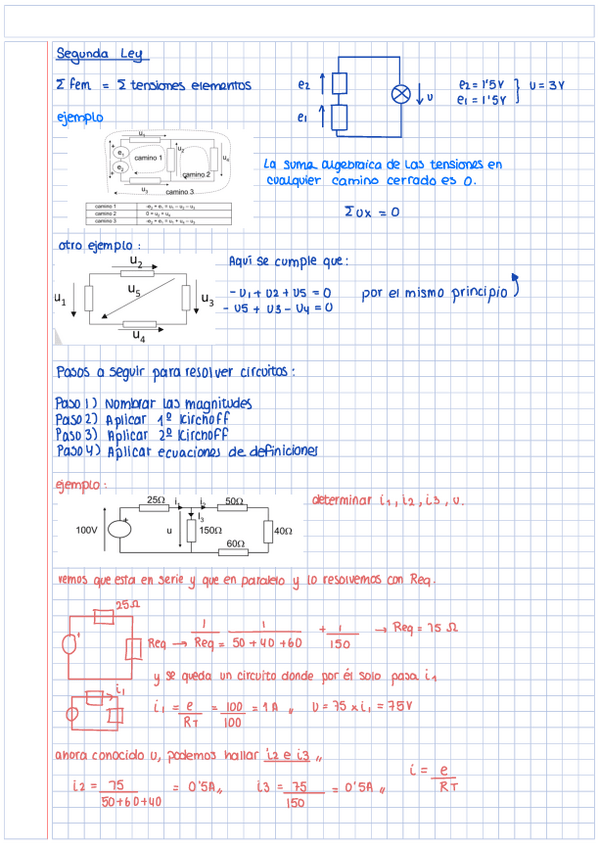 Segunda Ley
Σ fem = Σ tensiones elementos
e2
e1
U
e2 = 1'5V
e1 = 1'5V
} U = 3V
ejemplo
u1
e1
e2
camino 1
u2
camino 2
u4
u3
camino 3
camino 1
camino 2
camino 3
La suma algebraica de las tensiones en
cualquier camino cerrado es 0.
Σ Ux = 0
otro ejemplo:
u2
u1
u5
u3
u4
Aquí se cumple que:
- U1 + U2 + U5 = 0
- U5 + U3 - U4 = 0
por el mismo principio
Pasos a seguir para resolver circuitos:
Paso 1) Nombrar las magnitudes
Paso 2) Aplicar 1º Kirchoff
Paso 3) Aplicar 2º Kirchoff
Paso 4) Aplicar ecuaciones de definiciones
ejemplo:
25Ω i1 i2 50Ω
i3
100V u 150Ω 40Ω
60Ω
determinar i1, i2, i3, u.
vemos que esta en serie y que en paralelo y lo resolvemos con Req.
25Ω
Req → 1/Req = 1/50+40+60 + 1/150 → Req = 75 Ω
y se queda un circuito donde por él solo pasa i1
i1
i1 = e/RT = 100/100 = 1A ,, U = 75 x i1 = 75V
ahora conocido U, podemos hallar i2 e i3 ,,
i2 = 75/50+60+40 = 0'5A ,, i3 = 75/150 = 0'5A ,,
i = e/RT